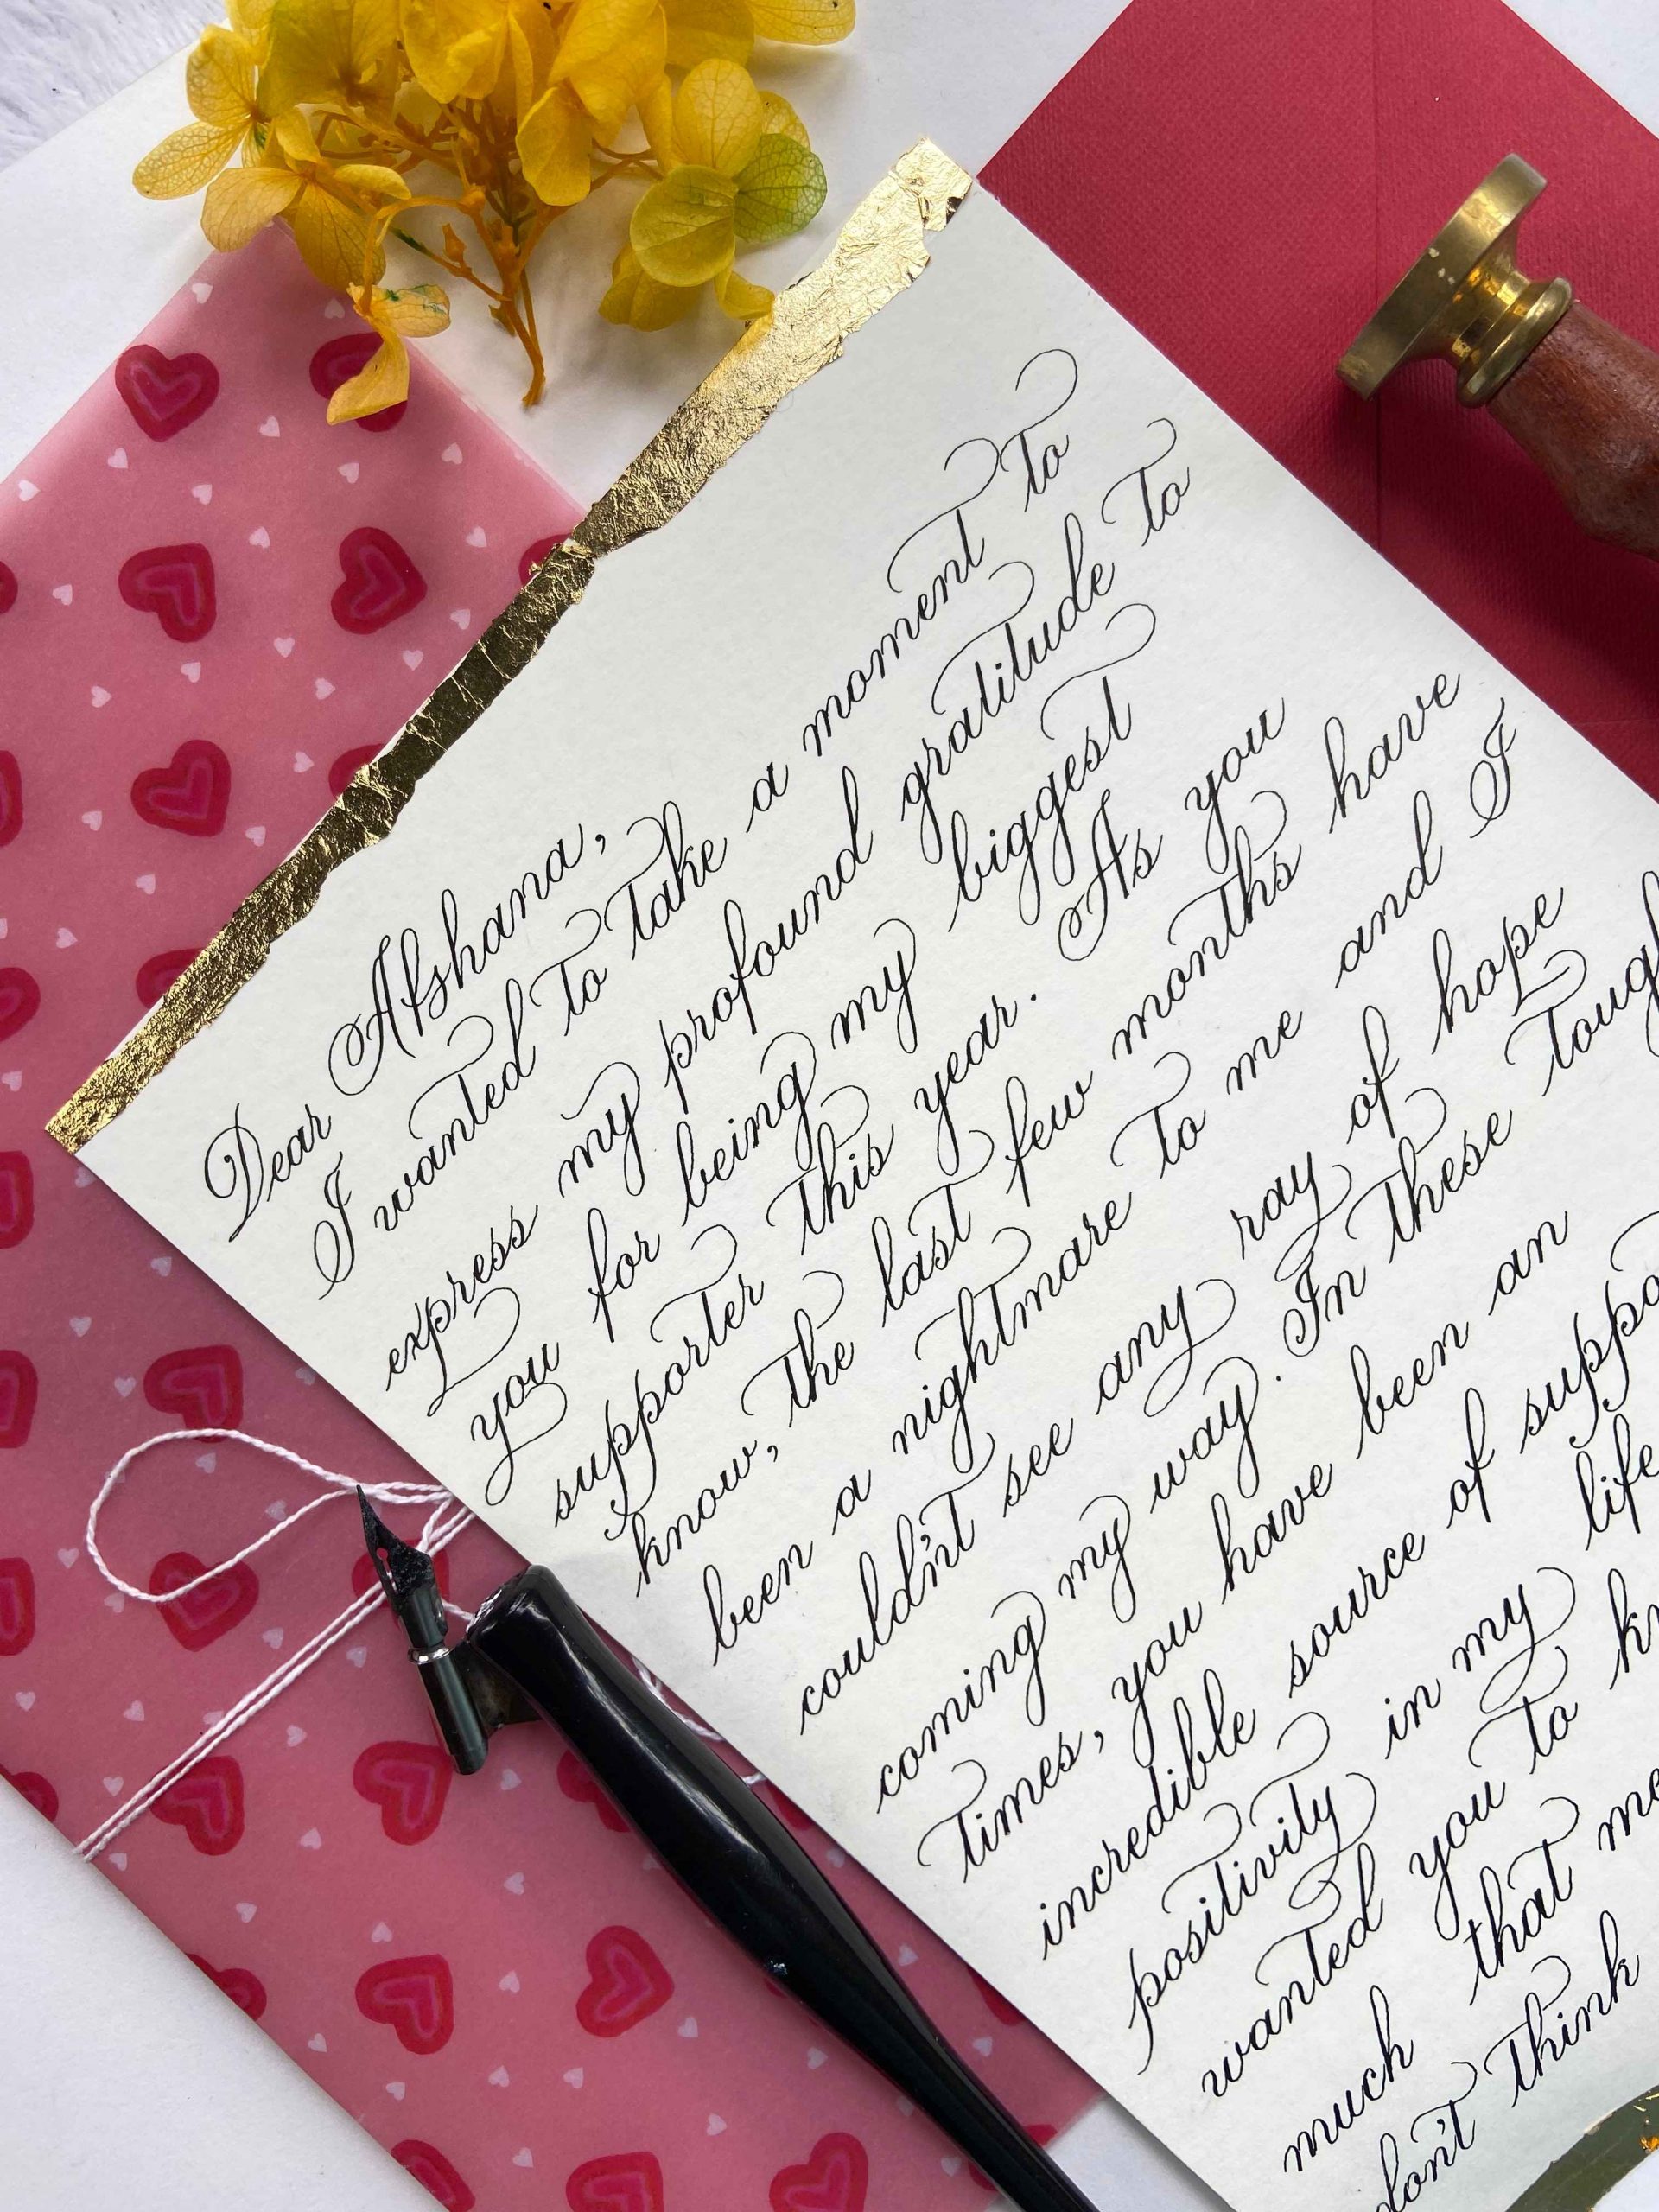 Dear Afshana,
I wanted to take a moment to
express my profound gratitude to
you for being my biggest
supporter this year. As you
know, the last few months have
been a nightmare to me and I
couldn't see any ray of hope
coming my way. In these tough
times, you have been an
incredible source of suppo
positivity in my life
wanted you to kn
much that mo
don't think